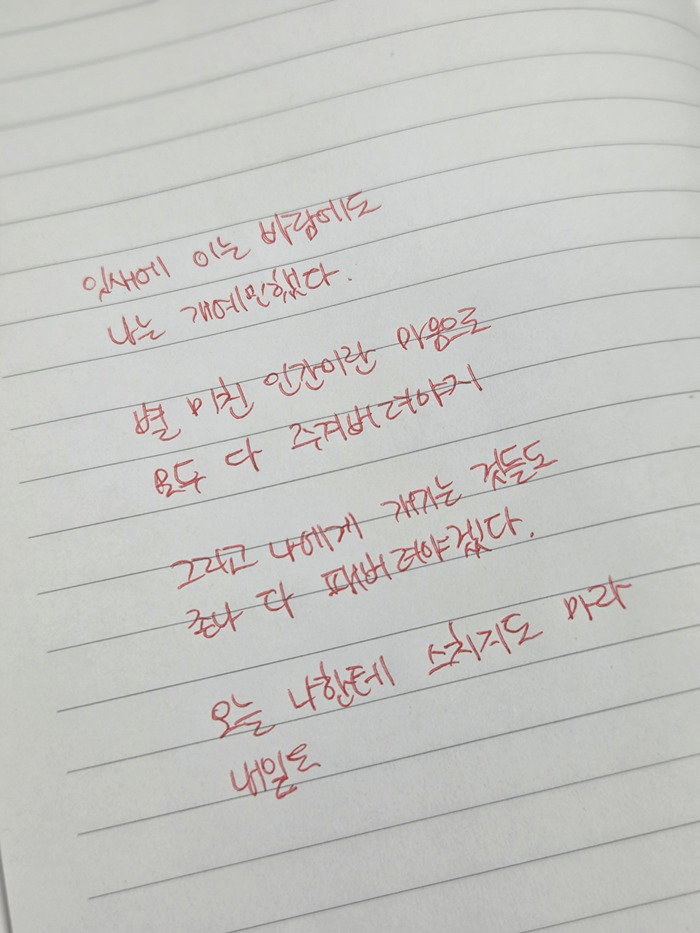 잎새에 이는 바람에도
나는 개예민했다.
별 미친 인간이란 마음으로
모두 다 주겨버려야지
그리고 나에게 개기는 것들도
존나 다 패버려야겠다.
오늘 나한테 스치지도 마라
내일도